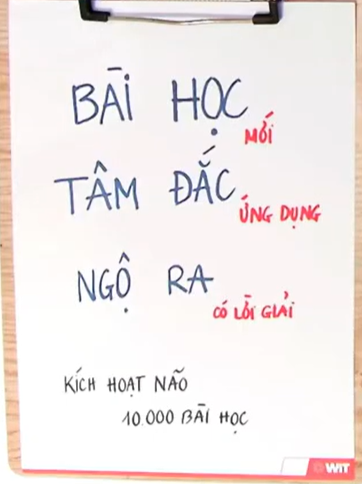 BÀI HỌC
MỚI
TÂM ĐẮC
ỨNG DỤNG
NGỘ RA
CÓ LỜI GIẢI
KÍCH HOẠT NÃO
10.000 BÀI HỌC
WIT